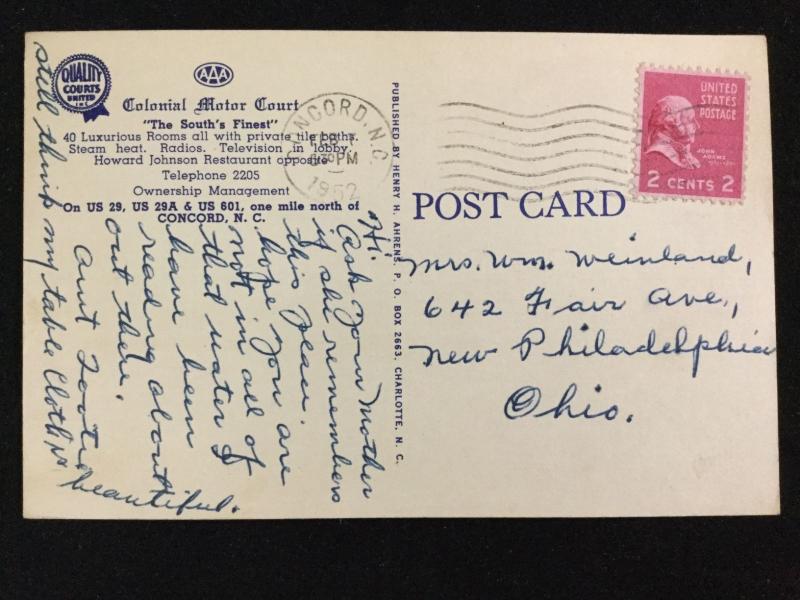 QUALITY
COURTS
UNITED
INC
AAA
Colonial Motor Court
"The South's Finest"
40 Luxurious Rooms all with private tile baths.
Steam heat. Radios. Television in lobby.
Howard Johnson Restaurant opposite
Telephone 2205
Ownership Management
On US 29, US 29A & US 601, one mile north of
CONCORD, N. C.
Hi,
Ask your Mother
if she remembers
this place.
hope you are
not in all of
that water I
have been
reading about
out there.
Aunt
still think my table cloth is
beautiful.
PUBLISHED BY HENRY H. AHRENS, P. O. BOX 2663, CHARLOTTE, N. C.
CONCORD, N.C.
PM
1952
UNITED
STATES
POSTAGE
JOHN
ADAMS
2 CENTS 2
POST CARD
Mrs. Wm. Weinland,
642 Fair Ave.,
New Philadelphia
Ohio.